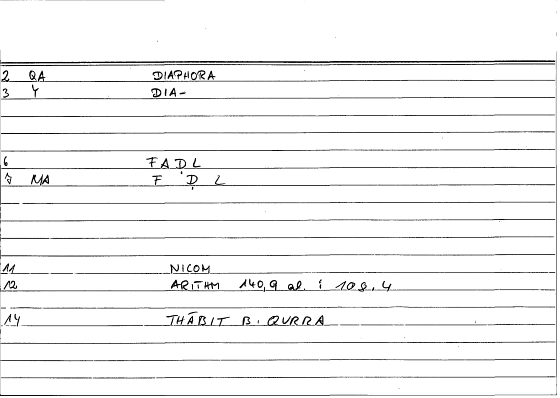 2 QA DIAPHORA
3 Y DIA-
6 FAḌL
7 MA F Ḍ L
11 NICOM
12 ARITHM 140,9 al. i 108.4
14 THĀBIT B. QURRA